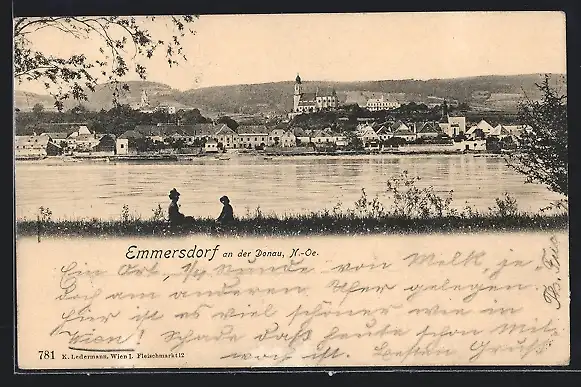 Emmersdorf an der Donau, N.-Oe.
Ein Ort, ¼ Stunde von Melk, je-
doch am anderen Ufer gelegen.
hier ist es viel schöner wie in
Wien! Schade daß heute schon Mit-
woch ist. Besten Gruß
781 K. Ledermann, Wien I. Fleischmarkt 12